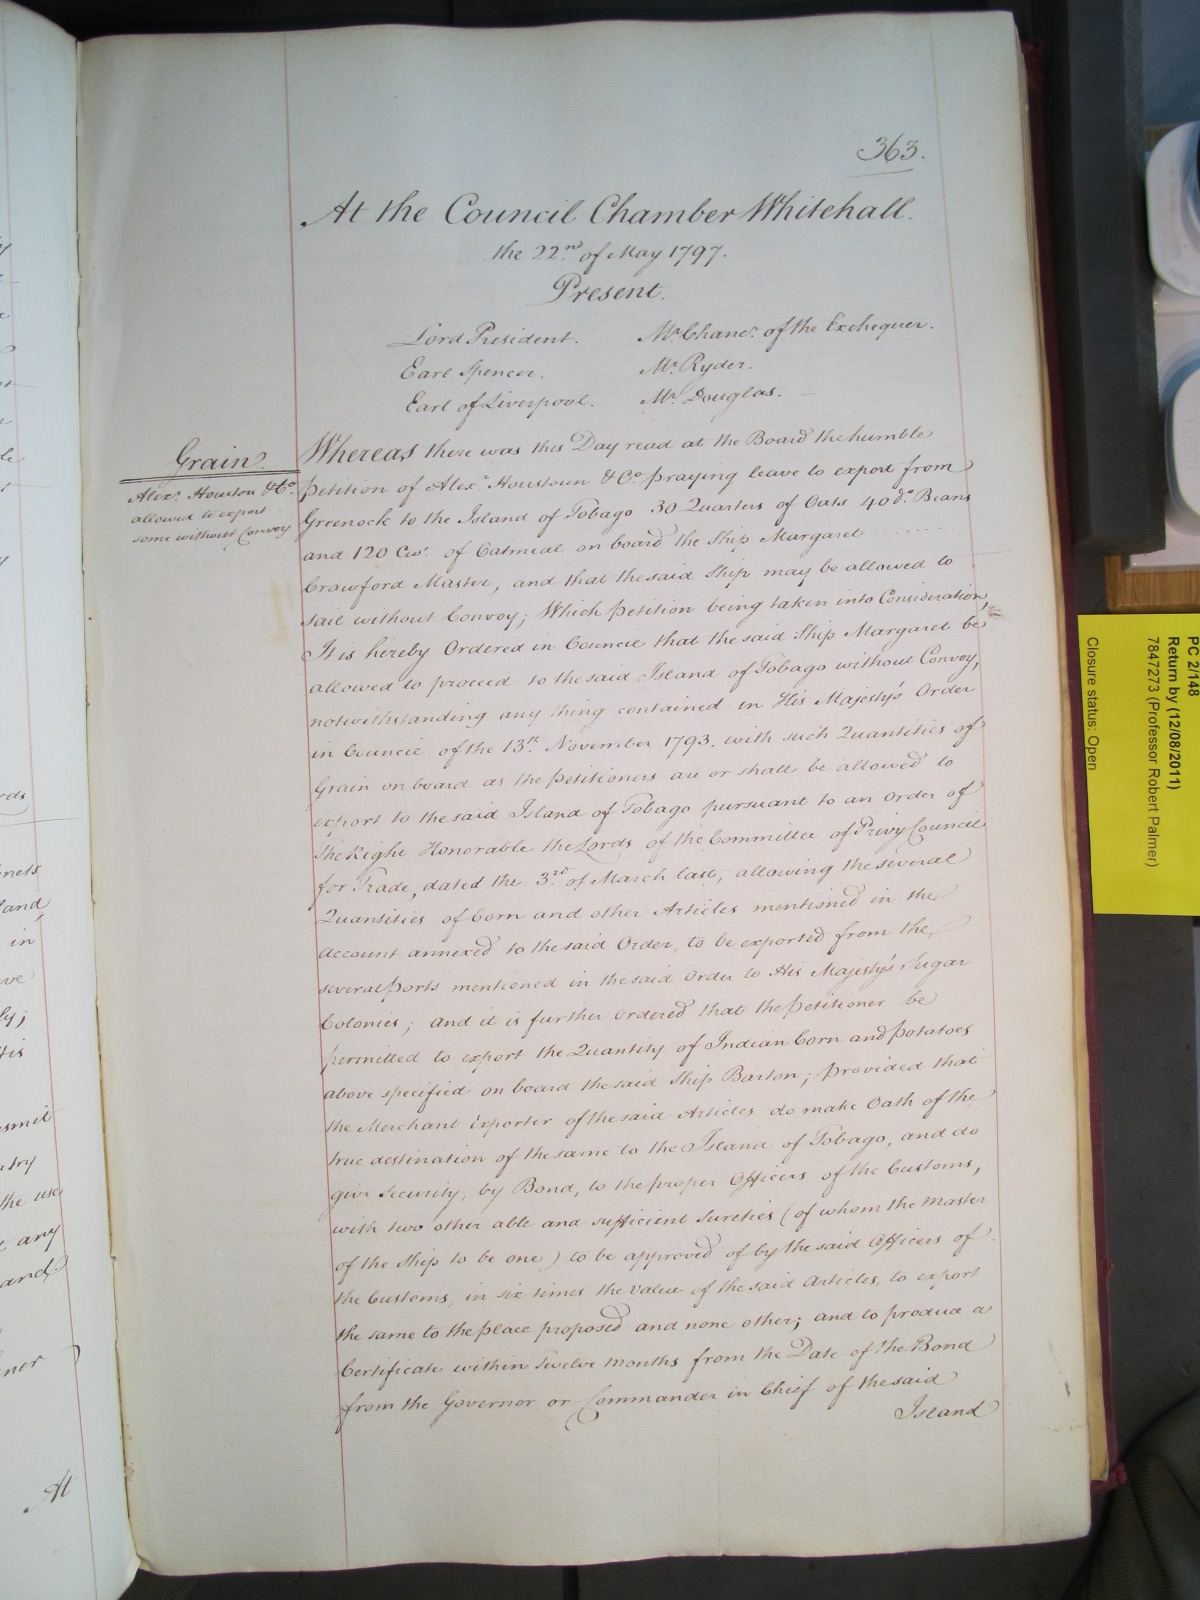 363.
At the Council Chamber Whitehall.
the 22.nd of May 1797.
Present.
Lord President. Mr. Chancr. of the Exchequer.
Earl Spencer. Mr. Ryder.
Earl of Liverpool. Mr. Douglas.
Grain.
Alexr. Houston & Co.
allowed to export
some without Convoy
Whereas there was this Day read at the Board the humble
Petition of Alexr. Houstoun & Co. praying leave to export from
Greenock to the Island of Tobago 30 Quarters of Oats 40 do. Beans
and 120 Cwt. of Oatmeal on board the Ship Margaret ....
Crawford Master, and that the said Ship may be allowed to
sail without Convoy; Which Petition being taken into Consideration,
It is hereby Ordered in Council that the said Ship Margaret be
allowed to proceed to the said Island of Tobago without Convoy,
notwithstanding any thing contained in His Majesty's Order
in Council of the 13th. November 1793. with such Quantities of
Grain on board as the Petitioners are or shall be allowed to
export to the said Island of Tobago pursuant to an Order of
The Right Honorable the Lords of the Committee of Privy Council
for Trade, dated the 3rd. of March last, allowing the several
Quantities of Corn and other Articles mentioned in the
account annexed to the said Order, to be exported from the
several Ports mentioned in the said Order to His Majesty's Sugar
Colonies; and it is further ordered that the Petitioner be
permitted to export the Quantity of Indian Corn and Potatoes
above specified on board the said Ship Barton; provided that
the Merchant Exporter of the said Articles do make Oath of the
true destination of the same to the Island of Tobago, and do
give Security, by Bond, to the proper Officers of the Customs,
with two other able and sufficient Sureties (of whom the Master
of the Ship to be one) to be approved of by the said Officers of
the Customs, in six times the value of the said Articles, to export
the same to the place proposed and none other; and to produce a
Certificate within Twelve Months from the Date of the Bond
from the Governor or Commander in Chief of the said
Island
land
in
smit
the use
any
and
At
PC 2/148
Return by (12/08/2011)
7847273 (Professor Robert Palmer)
Closure status: Open